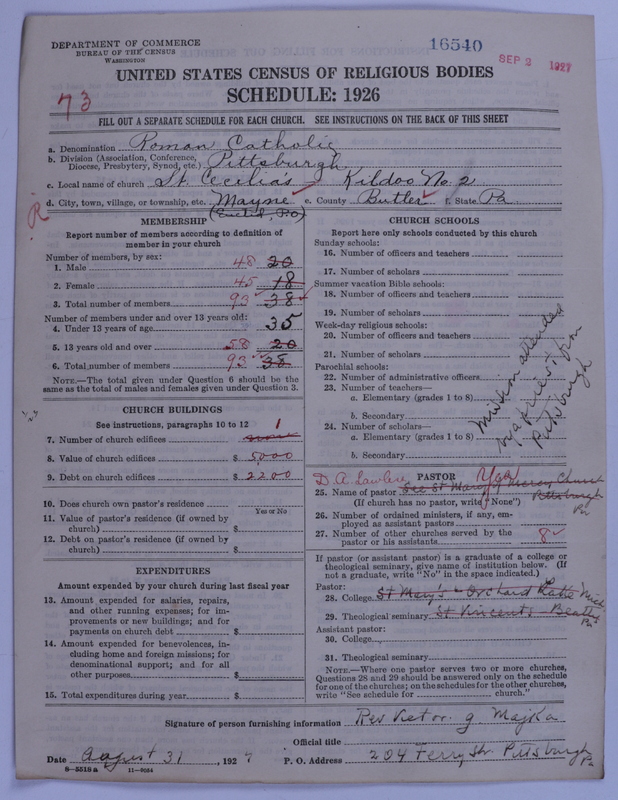 DEPARTMENT OF COMMERCE
BUREAU OF THE CENSUS
WASHINGTON
16540
SEP 2 1927
UNITED STATES CENSUS OF RELIGIOUS BODIES
SCHEDULE: 1926
73
FILL OUT A SEPARATE SCHEDULE FOR EACH CHURCH. SEE INSTRUCTIONS ON THE BACK OF THIS SHEET
a. Denomination Roman Catholic
b. Division (Association, Conference, Diocese, Presbytery, Synod, etc.) Pittsburgh
c. Local name of church St. Cecilia's Kildoo No. 2
d. City, town, village, or township, etc. Mayne e. County Butler f. State Pa
(Euclid, P.O.)
R
MEMBERSHIP
Report number of members according to definition of
member in your church
Number of members, by sex:
1. Male 48 20
2. Female 45 18
3. Total number of members 93 38
Number of members under and over 13 years old:
4. Under 13 years of age 35
5. 13 years old and over 58 20
6. Total number of members 93 38
NOTE.—The total given under Question 6 should be
same as the total of males and females given under Question 3.
CHURCH BUILDINGS
See instructions, paragraphs 10 to 12
7. Number of church edifices 1
8. Value of church edifices $ 5000
9. Debt on church edifices $ 2200
10. Does church own pastor's residence
Yes or No
11. Value of pastor's residence (if owned by
church) $
12. Debt on pastor's residence (if owned by
church) $
EXPENDITURES
Amount expended by your church during last fiscal year
13. Amount expended for salaries, repairs,
and other running expenses; for im-
provements or new buildings; and for
payments on church debt $
14. Amount expended for benevolences, in-
cluding home and foreign missions; for
denominational support; and for all
other purposes $
15. Total expenditures during year $
CHURCH SCHOOLS
Report here only schools conducted by this church
Sunday schools:
16. Number of officers and teachers
17. Number of scholars
Summer vacation Bible schools:
18. Number of officers and teachers
19. Number of scholars
Week-day religious schools:
20. Number of officers and teachers
21. Number of scholars
Parochial schools:
22. Number of administrative officers
23. Number of teachers—
a. Elementary (grades 1 to 8)
b. Secondary
24. Number of scholars—
a. Elementary (grades 1 to 8)
b. Secondary
Mission attended
from
Pittsburgh
PASTOR
D. A. Lawless Yes
25. Name of pastor See St Mary of Mercy Church
Pittsburgh
Pa
(If church has no pastor, write "None")
26. Number of ordained ministers, if any, em-
ployed as assistant pastors
27. Number of other churches served by the
pastor or his assistants 8
If pastor (or assistant pastor) is a graduate of a college or
theological seminary, give name of institution below. (If
not a graduate, write "No" in the space indicated.)
Pastor:
28. College St Mary's - Orchard Lake Mich
29. Theological seminary St Vincents - Beatty
Pa
Assistant pastor:
30. College
31. Theological seminary
NOTE.—Where one pastor serves two or more churches,
Questions 28 and 29 should be answered only on the schedule
for one of the churches; on the schedules for the other churches,
write "See schedule for church."
Signature of person furnishing information Rev Victor. G. Majka
Official title
Date August 31, 1927 P. O. Address 204 Ferry St. Pittsburgh Pa
8-5518 a 11-9084